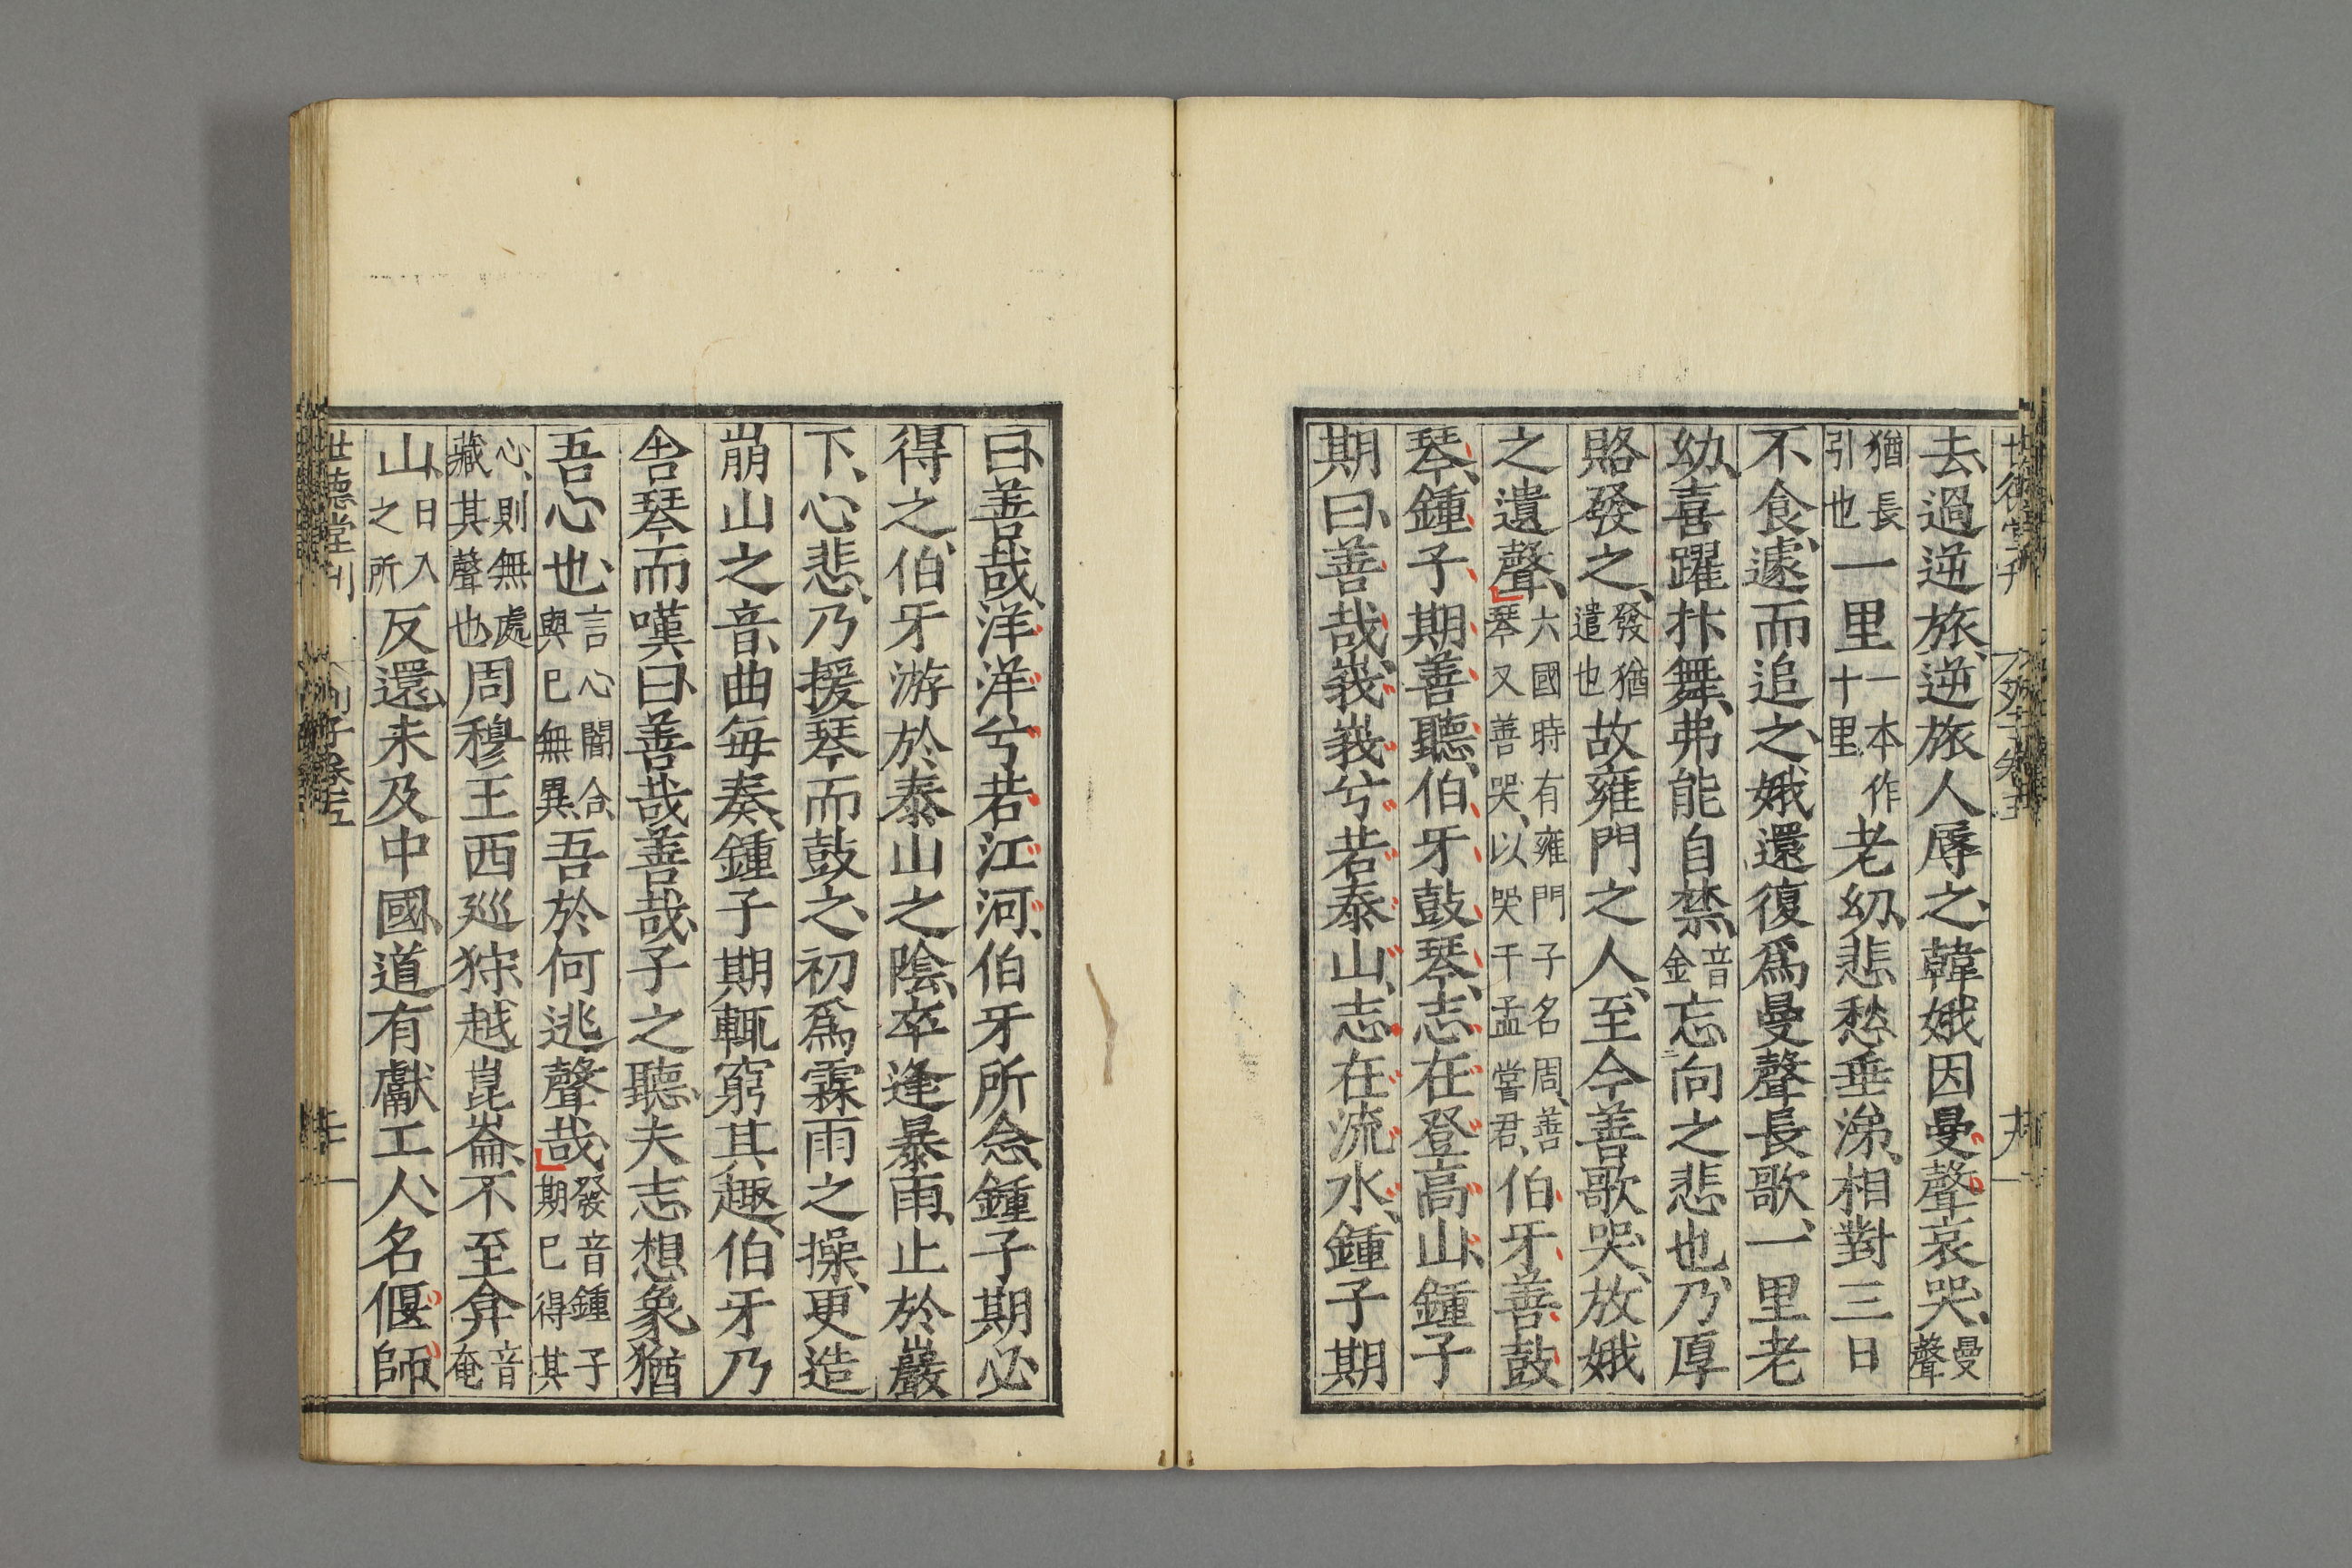 去、過逆旅、逆旅人辱之、韓娥因曼聲哀哭、曼聲
猶長引也一里一本作十里老幼、悲愁垂涕、相對三日
不食、遽而追之、娥還復爲曼聲長歌、一里老
幼、喜躍抃舞、弗能自禁、音金忘向之悲也、乃厚
賂發之、發猶遣也故雍門之人、至今善歌哭、放娥
之遺聲、六國時有雍門子名周、善琴又善哭、以哭干孟嘗君、伯牙善鼓
琴、鍾子期善聽、伯牙鼓琴、志在登高山、鍾子
期曰、善哉、峩峩兮若泰山、志在流水、鍾子期
曰、善哉、洋洋兮若江河、伯牙所念、鍾子期必
得之、伯牙游於泰山之陰、卒逢暴雨、止於巖
下、心悲、乃援琴而鼓之、初爲霖雨之操、更造
崩山之音、曲每奏、鍾子期輒窮其趣、伯牙乃
舍琴而嘆曰、善哉善哉、子之聽、夫志想象猶
吾心也、言心闇合、與已無異、吾於何逃聲哉發音鍾子期已得其
心、則無處藏其聲也、周穆王西廵狩越崑崙、不至弇音奄
山、日入之所反還、未及中國、道有獻工人、名偃師、
世德堂刊 列子卷五